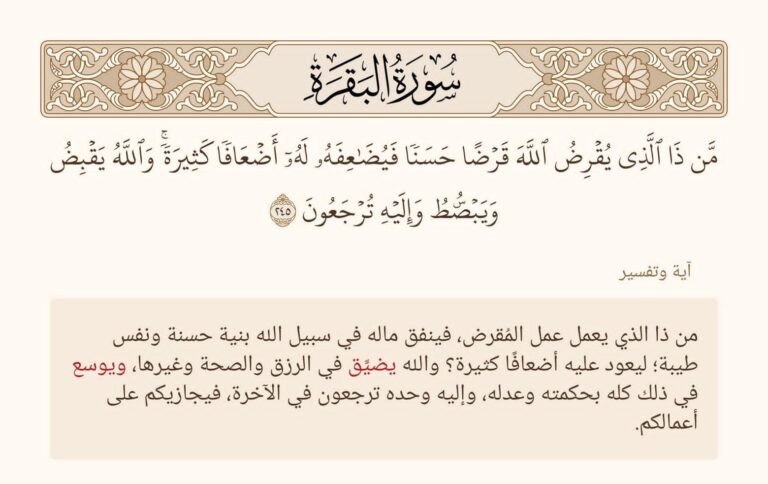 سُورَةُ البَقَرَةِ
مَّن ذَا ٱلَّذِى يُقْرِضُ ٱللَّهَ قَرْضًا حَسَنًا فَيُضَـٰعِفَهُۥ لَهُۥٓ أَضْعَافًا كَثِيرَةً ۚ وَٱللَّهُ يَقْبِضُ
وَيَبْصُۜطُ وَإِلَيْهِ تُرْجَعُونَ ٢٤٥
آية وتفسير
من ذا الذي يعمل عمل المُقرض، فينفق ماله في سبيل الله بنية حسنة ونفس
طيبة؛ ليعود عليه أضعافًا كثيرة؟ والله يضيِّق في الرزق والصحة وغيرها، ويوسع
في ذلك كله بحكمته وعدله، وإليه وحده ترجعون في الآخرة، فيجازيكم على
أعمالكم.